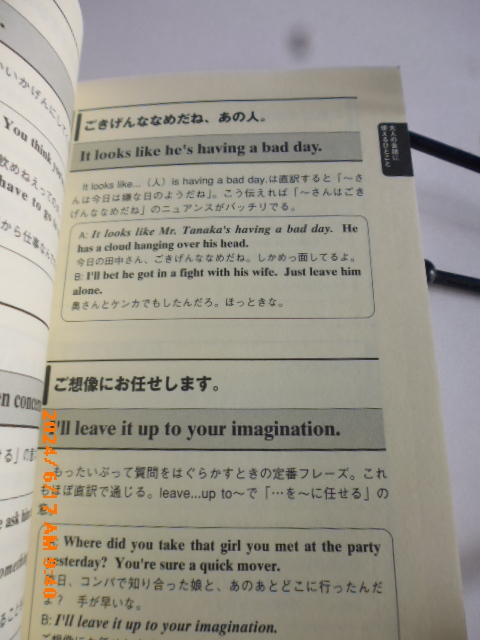 いかげんにして
You think you
飲めねえっての
have to
から仕事なんで
en concern
る」の
e ask him
something
ることや
大人の会話に
使えるひとこと
ごきげんななめだね、あの人。
It looks like he's having a bad day.
It looks like...（人）is having a bad day.は直訳すると「〜さ
んは今日は嫌な日のようだね」。こう伝えれば「〜さんはごき
げんななめだね」のニュアンスがバッチリでる。
A: It looks like Mr. Tanaka's having a bad day. He
has a cloud hanging over his head.
今日の田中さん、ごきげんななめだね。しかめっ面してるよ。
B: I'll bet he got in a fight with his wife. Just leave him
alone.
奥さんとケンカでもしたんだろ。ほっときな。
ご想像にお任せします。
I'll leave it up to your imagination.
もったいぶって質問をはぐらかすときの定番フレーズ。これ
もほぼ直訳で通じる。leave...up to〜で「…を〜に任せる」の
Where did you take that girl you met at the party
yesterday? You're sure a quick mover.
日、コンパで知り合った娘と、あのあとどこに行ったんだ
よ？ 手が早いな。
B: I'll leave it up to your imagination.
ご想像にお任せ
2024/6/17 AM 9:40